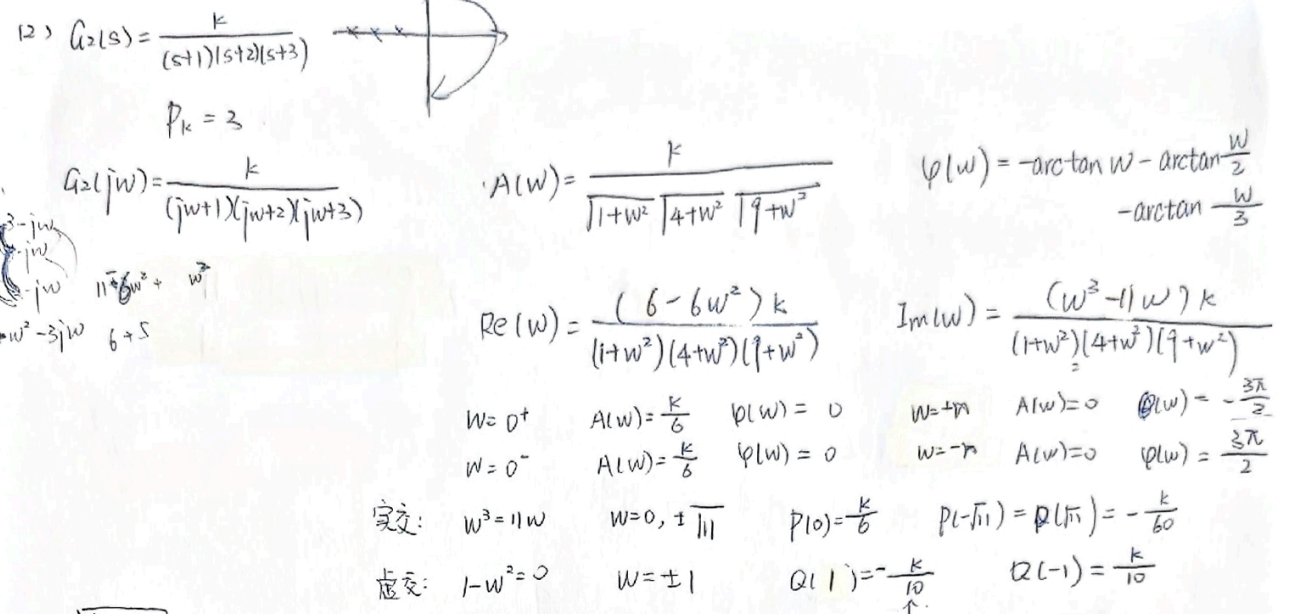 (2) G₂(s) = k / (s+1)(s+2)(s+3)
Pₖ = 3
G₂(jw) = k / (jw+1)(jw+2)(jw+3)
A(w) = k / √1+w² √4+w² √9+w²
φ(w) = -arctan w - arctan w/2
-arctan w/3
3-jw
-jw
-jw
w² -3jw
6+5
Re(w) = (6-6w²)k / (1+w²)(4+w²)(9+w²)
Im(w) = (w³-11w)k / (1+w²)(4+w²)(9+w²)
w=0⁺ A(w)=k/6 φ(w)=0 w=+∞ A(w)=0 φ(w)=-3π/2
w=0⁻ A(w)=k/6 φ(w)=0 w=-∞ A(w)=0 φ(w)=3π/2
实交: w³=11w w=0, ±√11 P(0)=k/6 P(-√11)=P(√11)=-k/60
虚交: 1-w²=0 w=±1 Q(1)=-k/10 Q(-1)=k/10